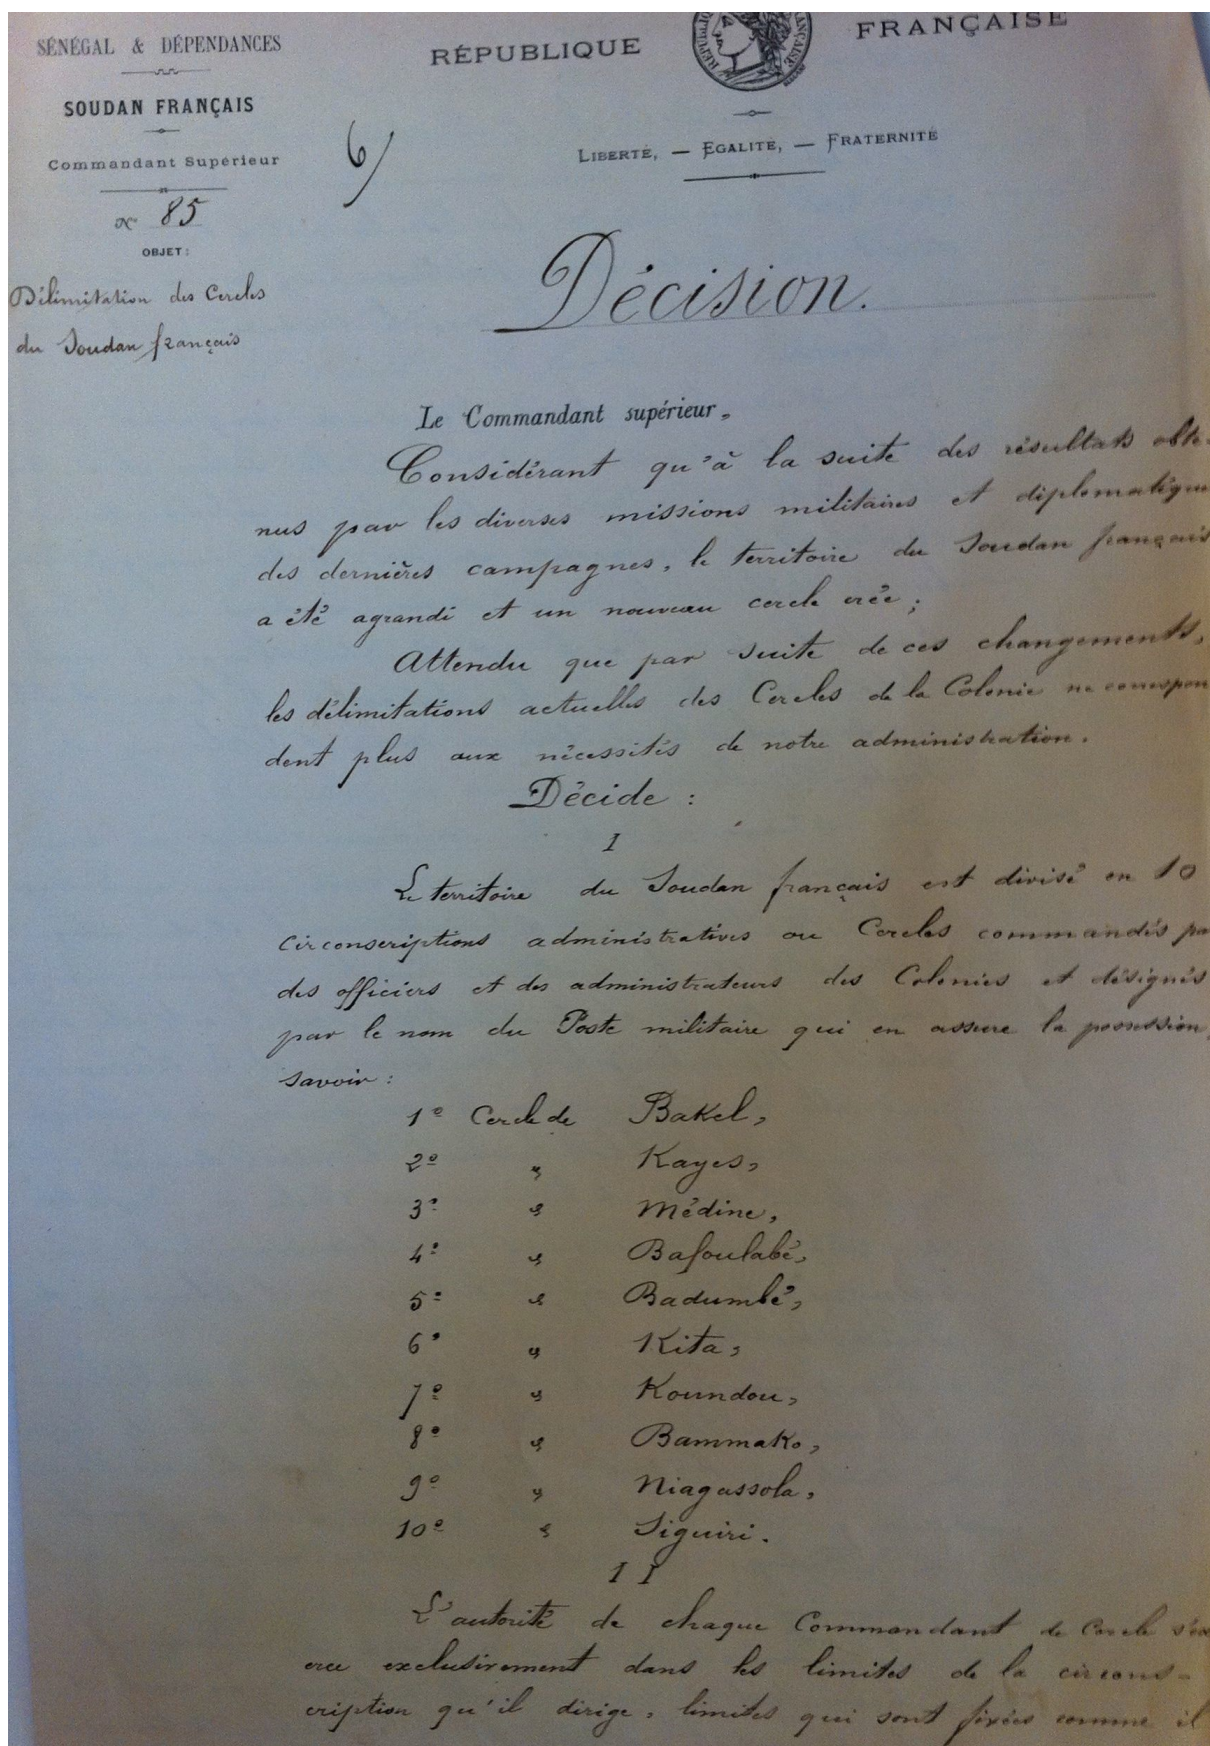 SÉNÉGAL & DÉPENDANCES
SOUDAN FRANÇAIS
Commandant Supérieur
N° 85
OBJET:
Délimitation des Cercles
du Soudan français
6/
RÉPUBLIQUE FRANÇAISE
LIBERTÉ, — EGALITÉ, — FRATERNITÉ
Décision.
Le Commandant supérieur,
Considérant qu'à la suite des résultats obte-
nus par les diverses missions militaires et diplomatiques
des dernières campagnes, le territoire du Soudan français
a été agrandi et un nouveau cercle créé;
Attendu que par suite de ces changements,
les délimitations actuelles des Cercles de la Colonie ne correspon
dent plus aux nécessités de notre administration.
Décide :
I
Le territoire du Soudan français est divisé en 10
circonscriptions administratives ou Cercles commandés pa
des officiers et des administrateurs des Colonies et désignés
par le nom du Poste militaire qui en assure la possession,
savoir :
1° Cercle de Bakel,
2° " Kayes,
3° " Médine,
4° " Bafoulabé,
5° " Badumbé,
6° " Kita,
7° " Koundou,
8° " Bammako,
9° " Niagassola,
10° " Siguiri.
II
L'autorité de chaque Commandant de Cercle s'ex
erce exclusivement dans les limites de la circons-
cription qu'il dirige, limites qui sont fixées comme il